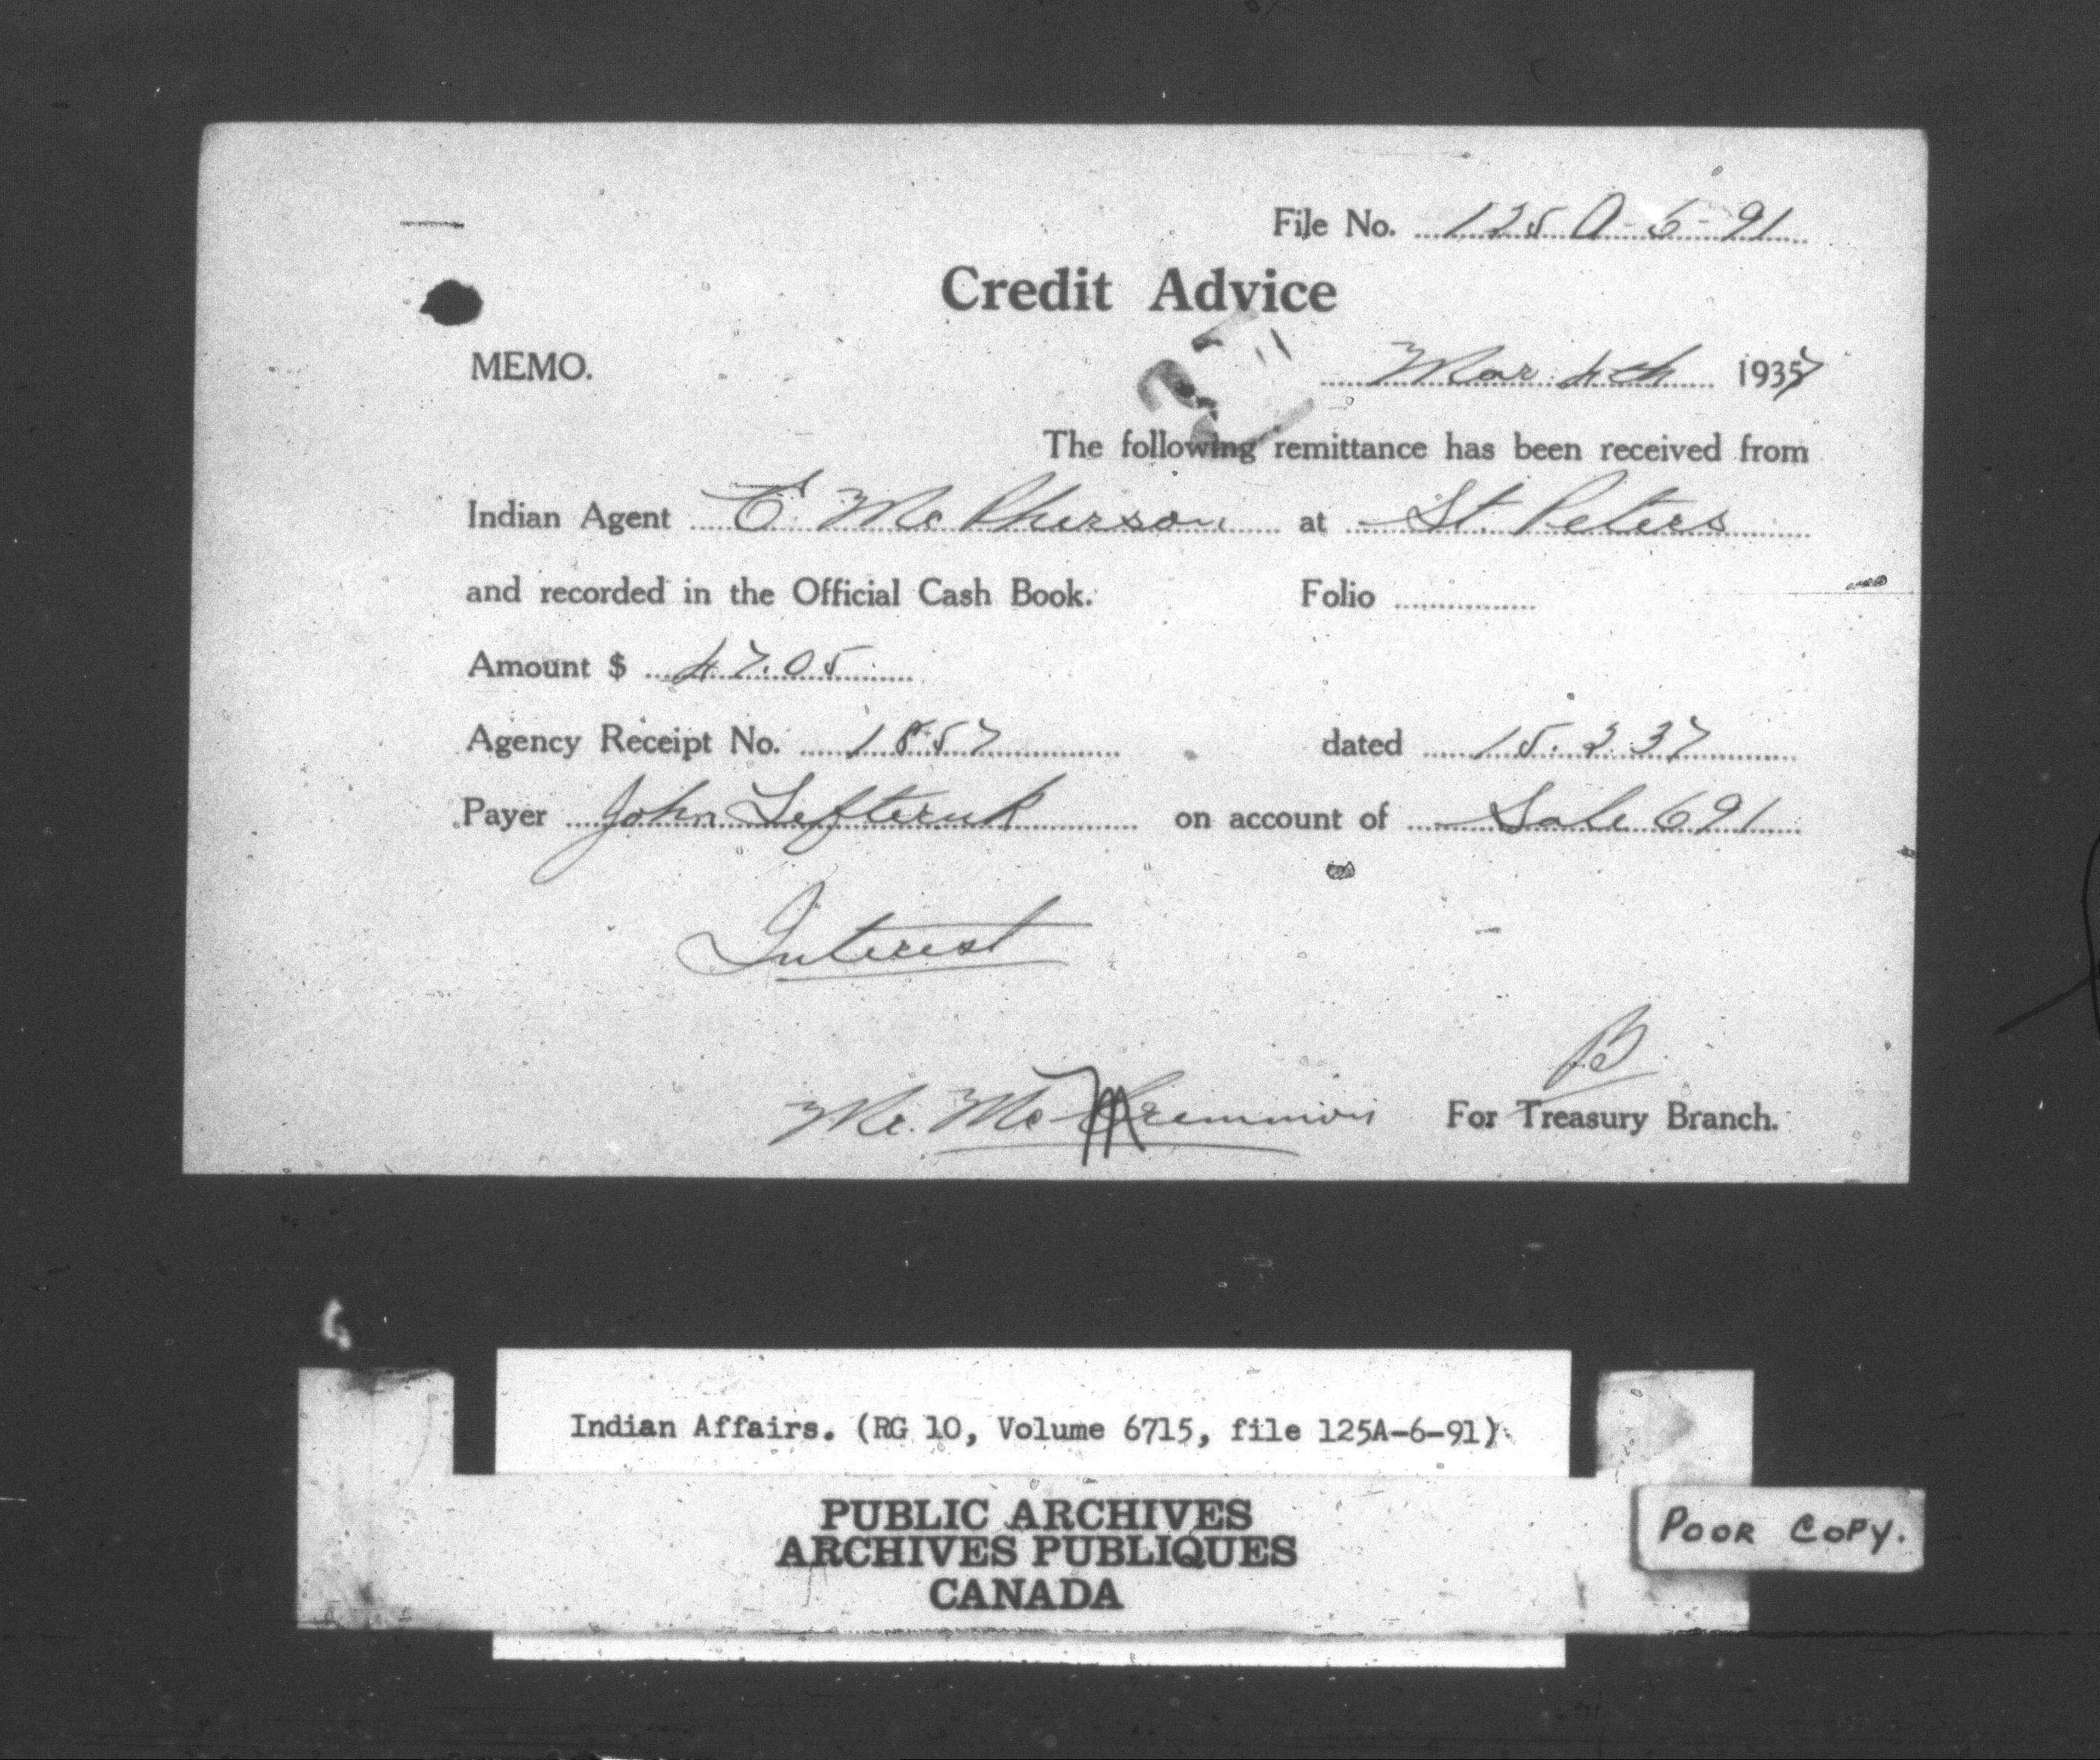 File No. 125A-6-91
Credit Advice
MEMO. Mar 4th 1937
The following remittance has been received from
Indian Agent E McPherson at St. Peters
and recorded in the Official Cash Book. Folio
Amount $ 47.05
Agency Receipt No. 1857 dated 15.2.37
Payer John Lefteruk on account of Sale 691
Interest
B
Mr. McCremmon For Treasury Branch.
Indian Affairs. (RG 10, Volume 6715, file 125A-6-91)
PUBLIC ARCHIVES
ARCHIVES PUBLIQUES
CANADA
POOR COPY.